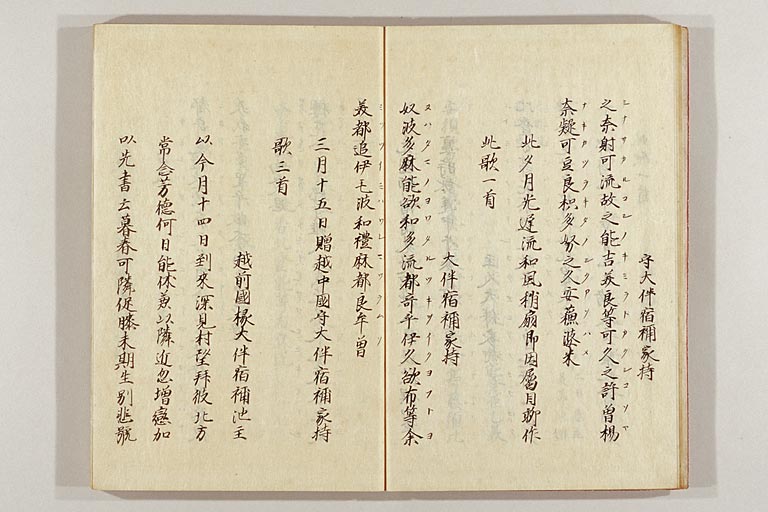 守大伴宿祢家持
之奈射可流故之能吉美良等可久之許曽楊
奈疑可豆良枳多努之久安蘓婆米
此夕月光遅流和風稍扇即因属目聊作
此歌一首
大伴宿祢家持
奴波多麻能欲和多流都奇乎伊久欲布等余
美都追伊毛波和禮麻都良牟曽
三月十五日贈越中國守大伴宿祢家持
歌三首
越前國掾大伴宿祢池主
以今月十四日到來深見村望拜彼北方
常念芳徳何日能休兼以隣近忽増戀加
以先書云暮春可隣促膝未期生別悲號